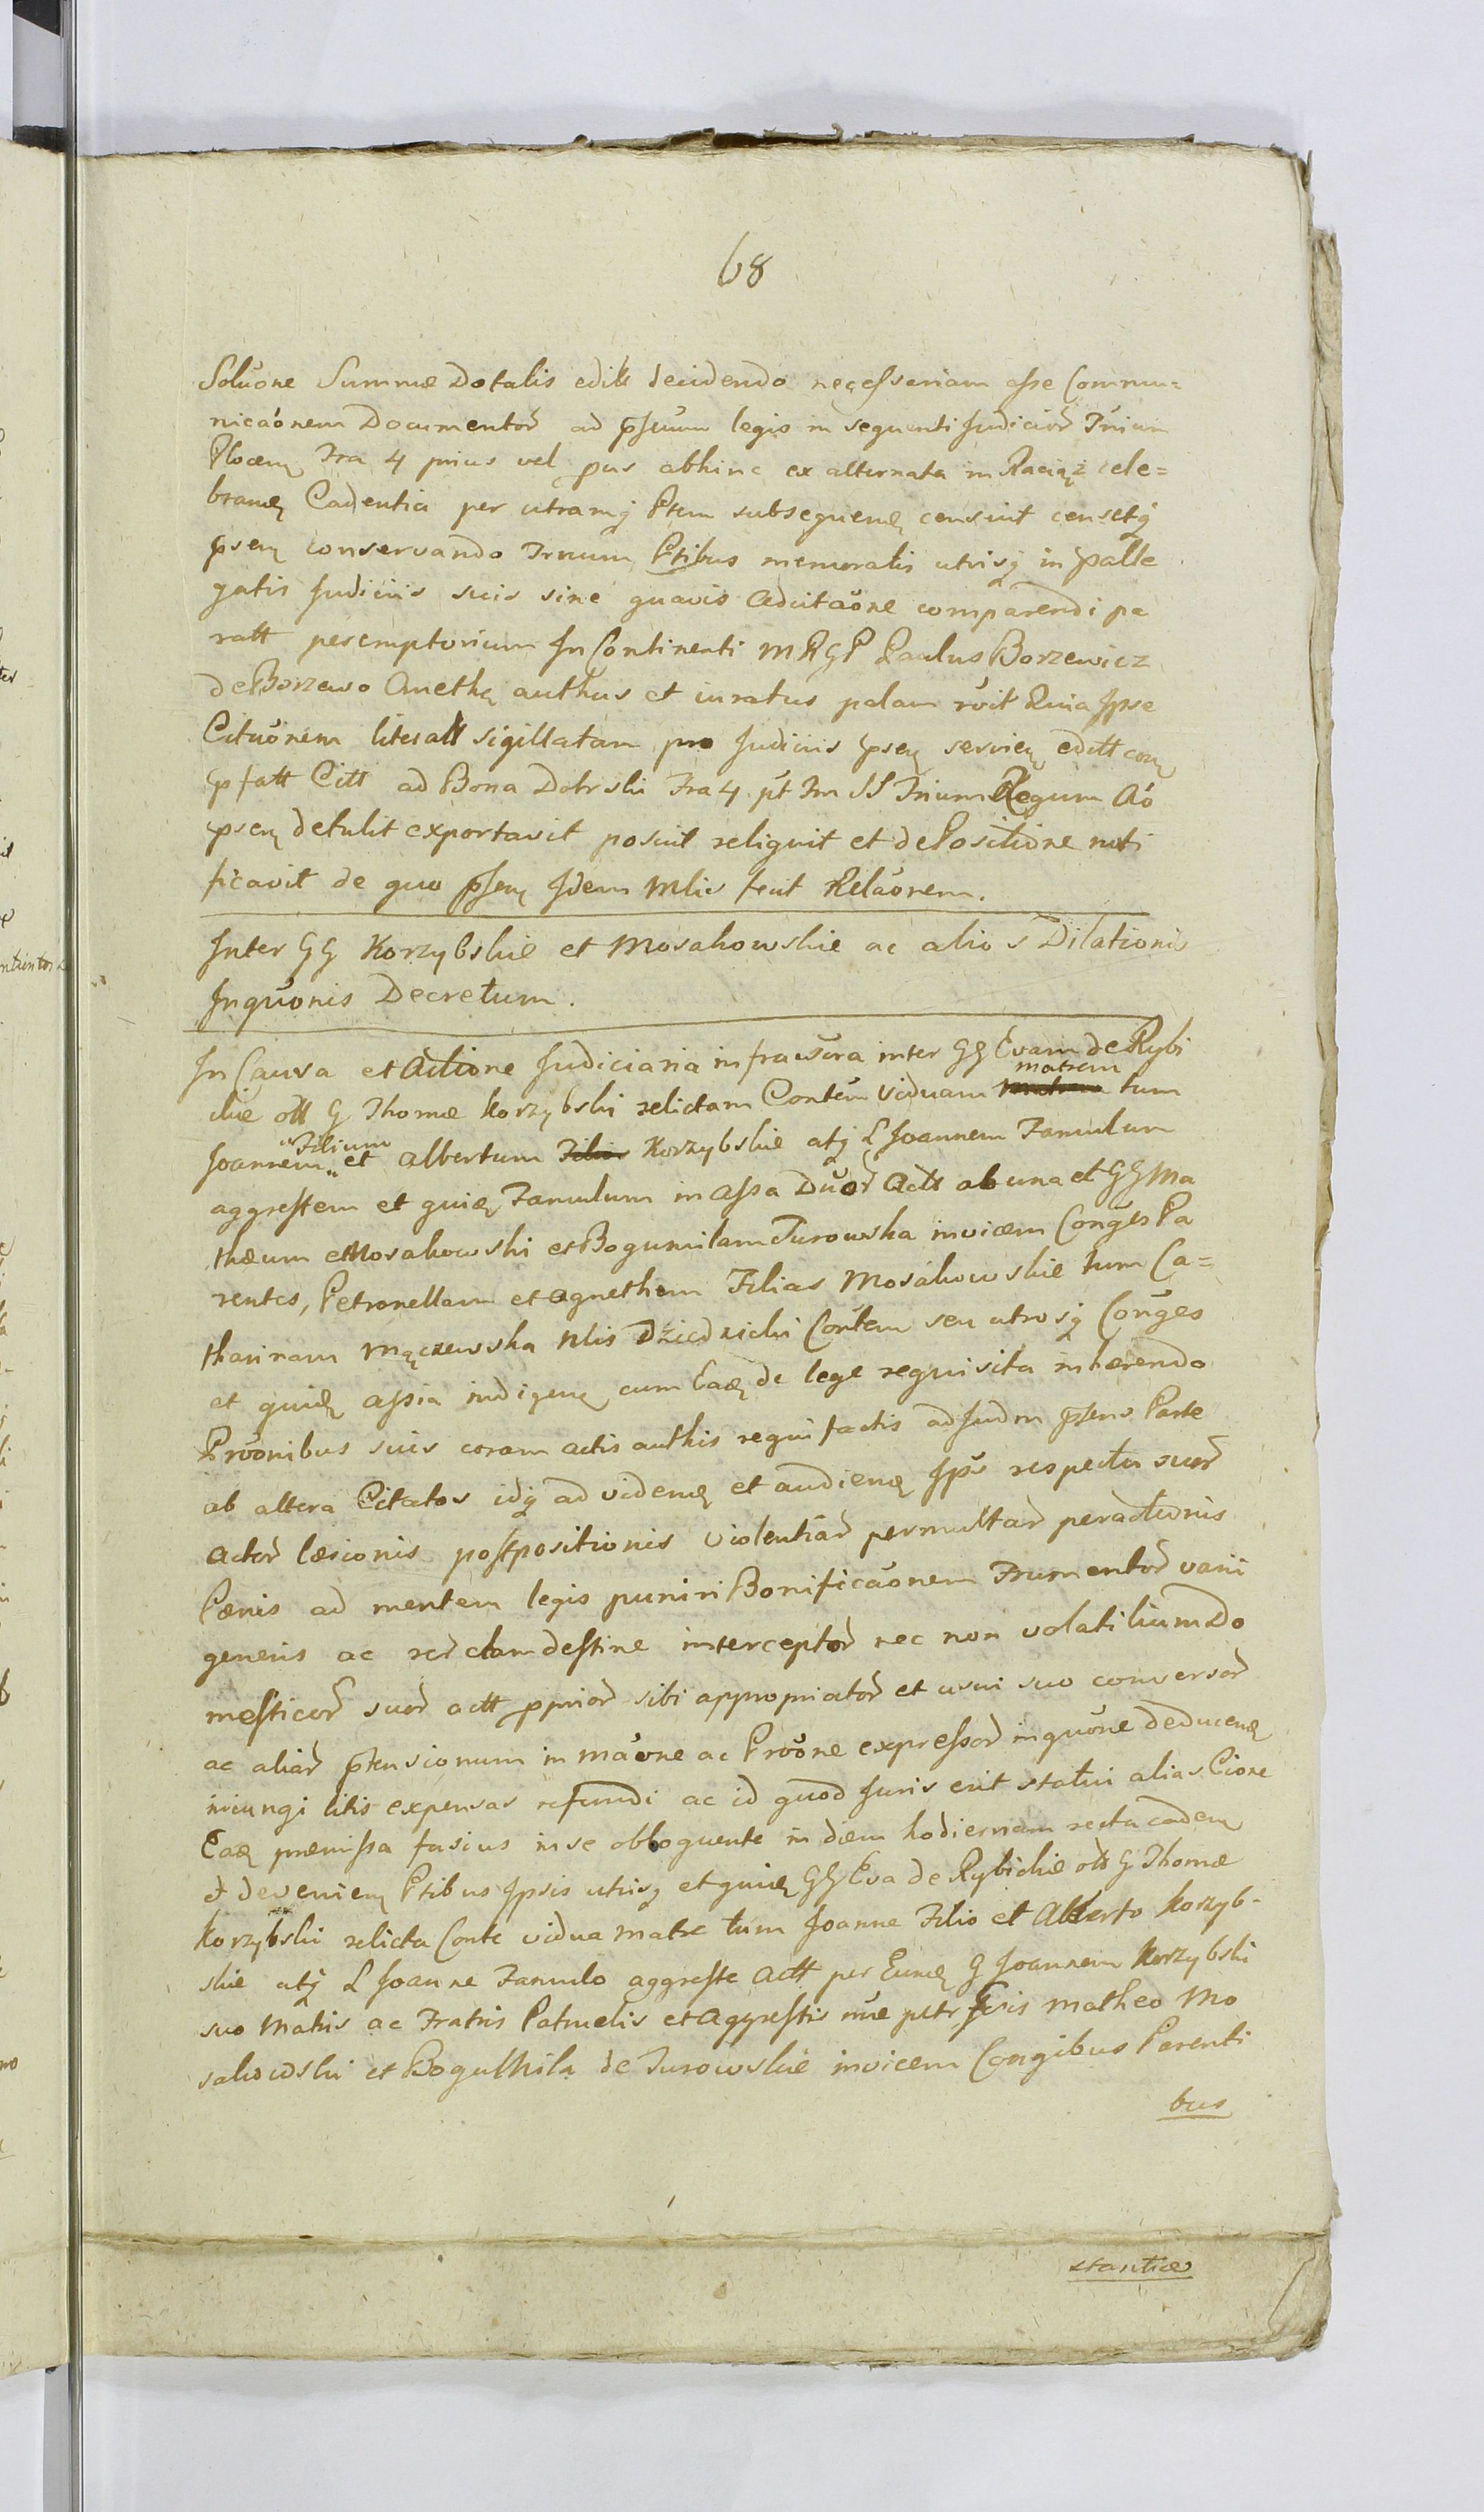 68
Soluõne Summæ Dotalis editt decidendo necessariam esse Commu=
nicaõnem Documentor̃ ad p̃suum legis in sequenti Judicior̃ Trium
Plocen Fra 4 prius vel pus abhinc ex alternata in Raciąż cele=
brand Cadentia per utramq Ptem subsequend censuit censetq
p̃sen conservando Trnum Ptibus memoratis utrisq in p̃alle
gatis Judiciis suis sine quavis Adcitaõne comparendi pe
ratt peremptorium In Continenti M R G P Paulus Borzewicz
de Borzewo Aneth authus et iuratus palam rõit Quia Ipse
Cituõnem literall sigillatam pro Judiciis p̃sen servien editt con
p̃fatt Citt ad Bona Dobrski Fra 4 pt Fm SS Trium Regum Aõ
p̃sen detulit exportavit posuit reliquit et de Positione noti
ficavit de quo p̃sen Idem Mlis fecit Relaõnem.
Inter GG Korzybskie et Mosakowskie ac alios Dilationis
Inquõnis Decretum.
In Causa et Actione Judiciaria infrascra inter GG Evam de Rybi
matrem
ckie ott G Thomæ Korzybski relictam Contem Viduam tum
"Filium
Joannem „ et Albertum Filios Korzybskie atq L Joannem Famulum
aggrestem et quid Famulum in assa Duor̃ Actt ab una et GG Ma
thæum Mosakowski et Bogumilam Turowska invicem Conges Pa
rentes, Petronellam et Agnethem Filias Mosakowskie tum Ca=
tharinam Mączewska Nlis Dziedzicki Contem seu utrosq Conges
et quid assia indigen cum Ead de lege requisita inhærendo
Prõonibus suis coram actis authis requi factis ad Judm p̃sens Parte
ab altera Citatos idq ad vidend et audiend Ips respectu suor̃
Actor̃ læsionis postpositionis violentiar̃ permultar̃ peractionis
Pænis ad mentem legis puniri Bonificaõnem Frumentor̃ varii
generis ac rer̃ clamdestine interceptor̃ nec non volatilium Do
mesticor̃ suor̃ actt p̃prior̃ sibi appropriator̃ et usui suo conversor̃
ac aliar̃ p̃tensionum in maõne ac Prõone expressor̃ inquõne deducend
iniungi litis expensas refundi ac id quod Juris erit statui alias Cione
Ead præmissa fusius in se obloquente in diem hodiernam recta caden
et devenien Ptibus Ipsis utrisq et quid GG Eva de Rybickie ott G Thomæ
Korzybski relicta Conte vidua matre tum Joanne Filio et Alberto Korzyb-
skie atq L Joanne Famulo aggreste Actt per Eund G Joannem Korzybski
suo Matris ac Fratris Patruelis et Aggrestis nne petr Gris Matheo Mo
sakowski et Bogumila de Turowskie invicem Congibus Parenti
bus
stantiæ